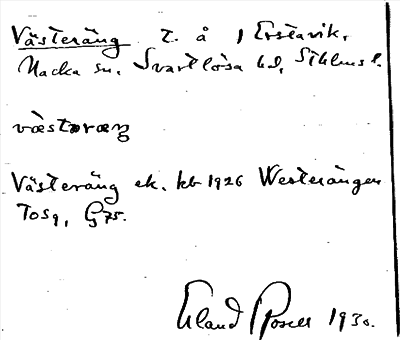 Västeräng t. å 1 Erstavik,
Nacka sn. Svartlösa hd, Sthlms l.
væstəræŋ
Västeräng ek. kb 1926 Westerängen
Tosq, G75.
Erland Rosell 1930.